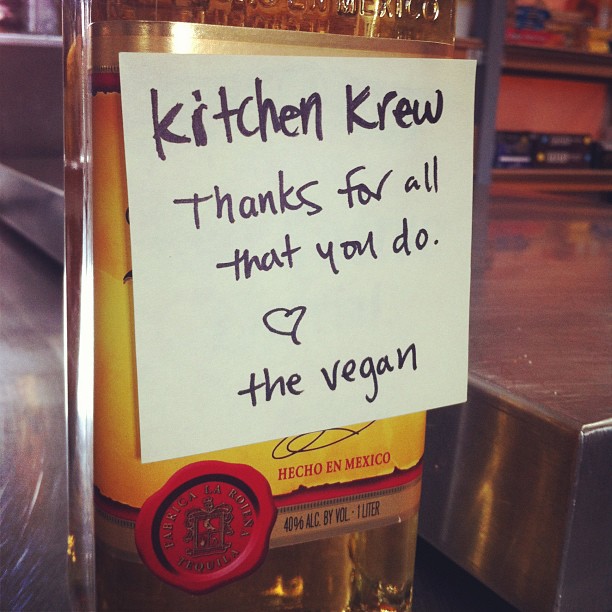 MEXICO
Kitchen Krew
Thanks for all
that you do.
♡
the vegan
HECHO EN MEXICO
40% ALC. BY VOL · 1 LITER
FABRICA LA ROJEÑA
TEQUILA